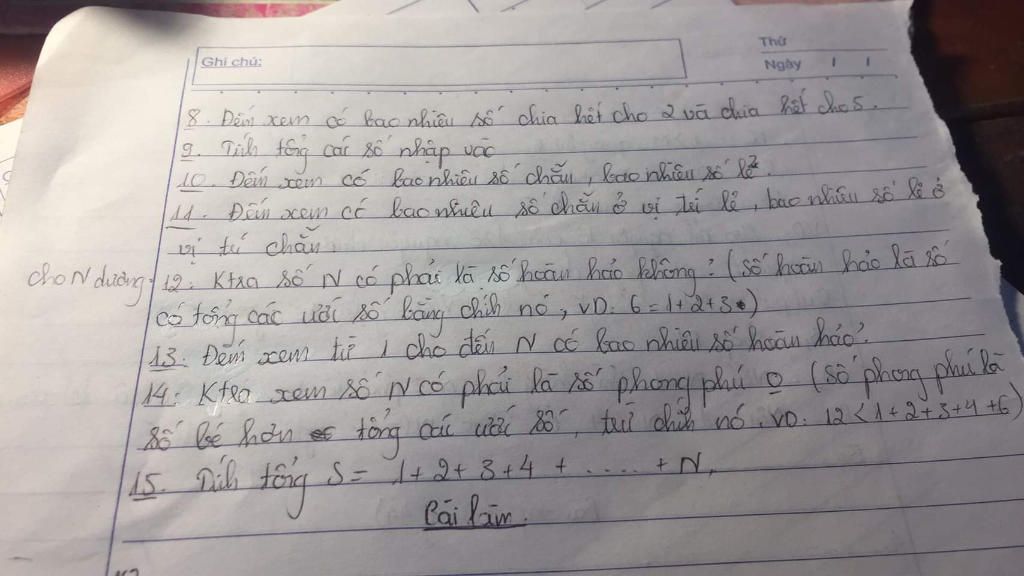 Ghi chú:
Thứ
Ngày / /
8. Đếm xem có bao nhiêu số chia hết cho 2 và chia hết cho 5.
9. Tính tổng các số nhập vào
10. Đếm xem có bao nhiêu số chẵn, bao nhiêu số lẻ?
11. Đếm xem có bao nhiêu số chẵn ở vị trí lẻ, bao nhiêu số lẻ ở
vị trí chẵn.
cho N dương.
12. Ktra số N có phải là số hoàn hảo không? (số hoàn hảo là số
có tổng các ước số bằng chính nó, VD: 6 = 1+2+3)
13. Đếm xem từ 1 cho đến N có bao nhiêu số hoàn hảo?
14. Ktra xem số N có phải là số phong phú o (số phong phú là
số bé hơn tổng các ước số, trừ chính nó. VD: 12 < 1+2+3+4+6)
15. Tính tổng S = 1+2+3+4 + ..... + N.
Bài làm.